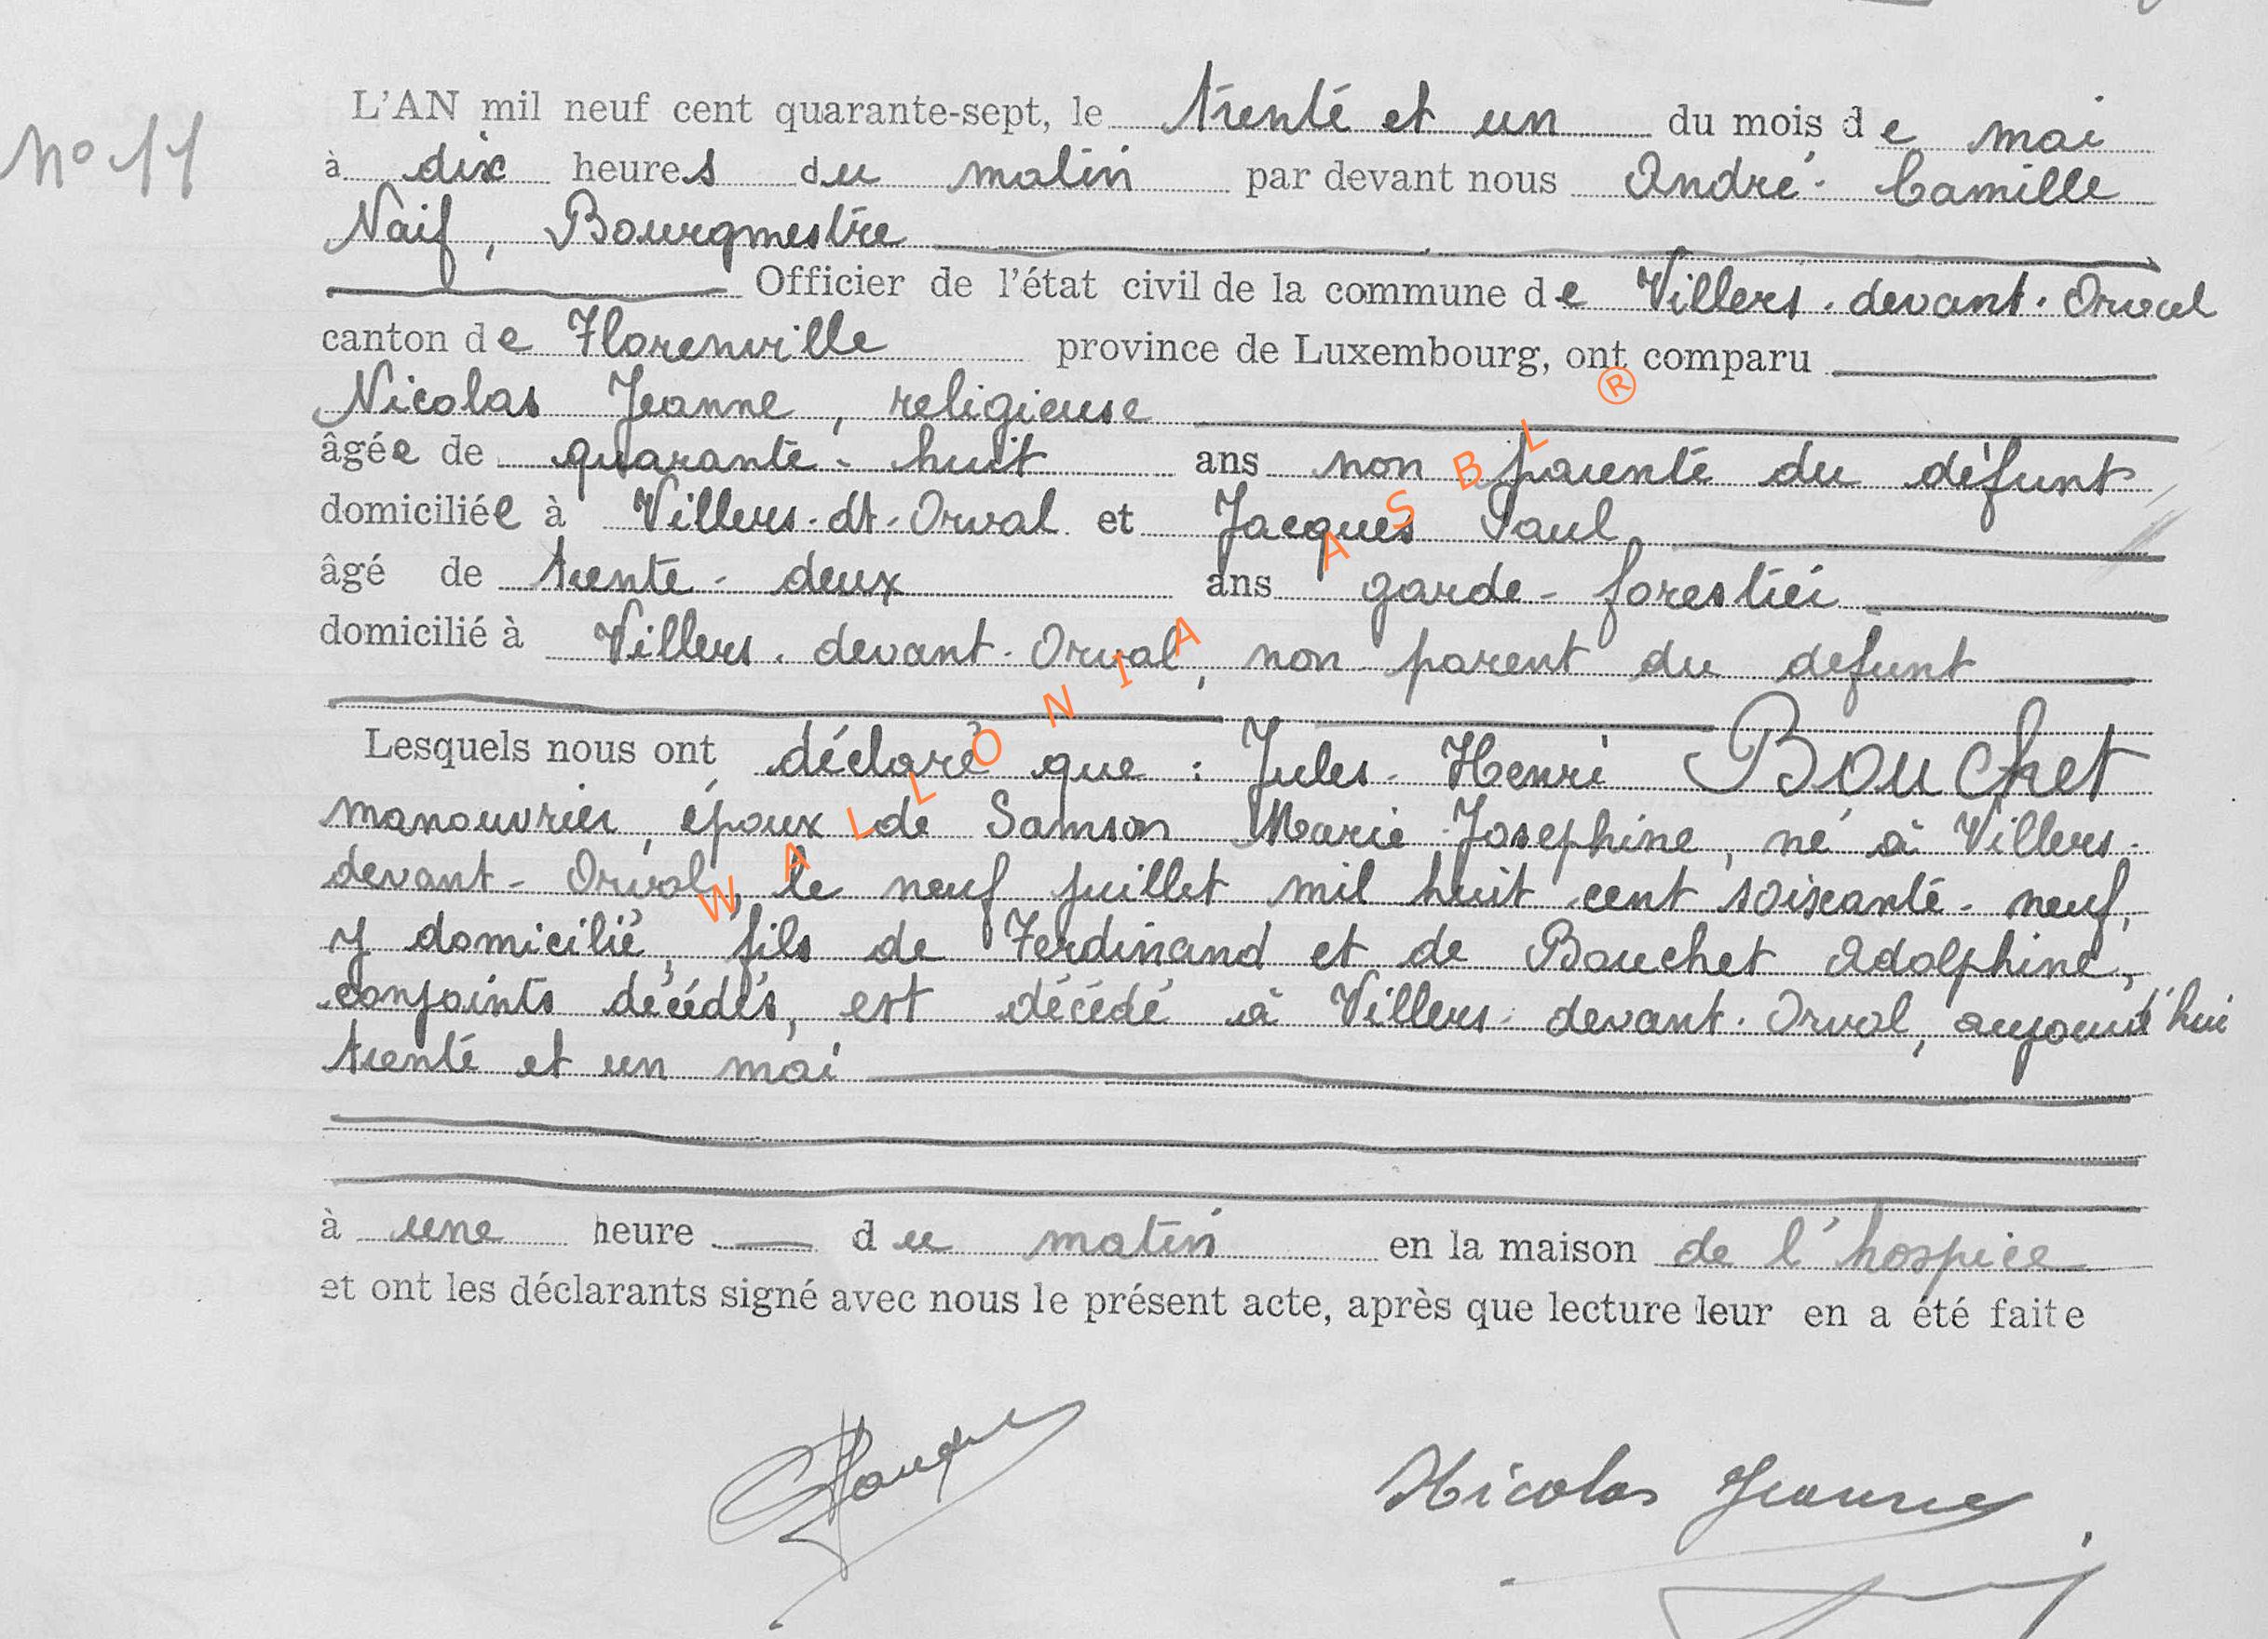 N° 11
L'AN mil neuf cent quarante-sept, le trente et un du mois de mai
à dix heures du matin par devant nous André-Camille
Naif, Bourgmestre
Officier de l'état civil de la commune de Villers-devant-Orval
canton de Florenville province de Luxembourg, ont comparu
Nicolas Jeanne, religieuse
âgée de quarante-huit ans non parente du défunt
domiciliée à Villers-dt-Orval et Jacques Paul
âgé de trente-deux ans garde-forestier
domicilié à Villers-devant-Orval, non parent du defunt
Lesquels nous ont déclaré que : Jules-Henri Bouchet
manouvrier, époux de Samson Marie-Josephine, né à Villers-
devant-Orval, le neuf juillet mil huit cent soixante-neuf,
y domicilié, fils de Ferdinand et de Bouchet Adolphine,
conjoints décédés, est décédé à Villers-devant-Orval, aujourd'hui
trente et un mai
à une heure du matin en la maison de l'hospice
et ont les déclarants signé avec nous le présent acte, après que lecture leur en a été faite
Jacques
Nicolas Jeanne
WALLONIA ASBL ®